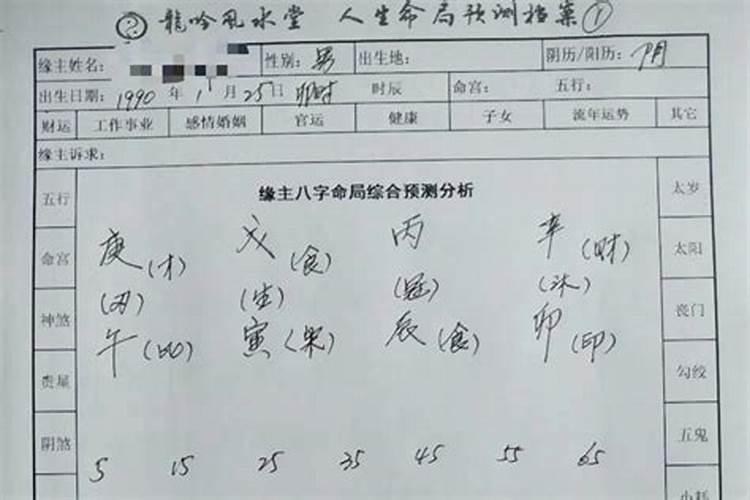 ② 龍吟风水堂 人生命局预测档案①
缘主姓名: 性别: 男 出生地: 阴历/阳历: 阴
出生日期: 1990 年 1 月 25 日 卯时 时辰 命宫: 五行:
财运 工作事业 感情婚姻 官运 健康 子女 流年运势 其它
缘主诉求:
缘主八字命局综合预测分析
五行
命宫
神煞
贵星
阴煞
庚(才) 戊(食) 丙 辛(财)
(刃) (生) (冠) (沐)
午 寅 辰(食) 卯(印)
5 15 25 35 45 55 65
太岁
太阳
丧门
勾绞
五鬼
小耗